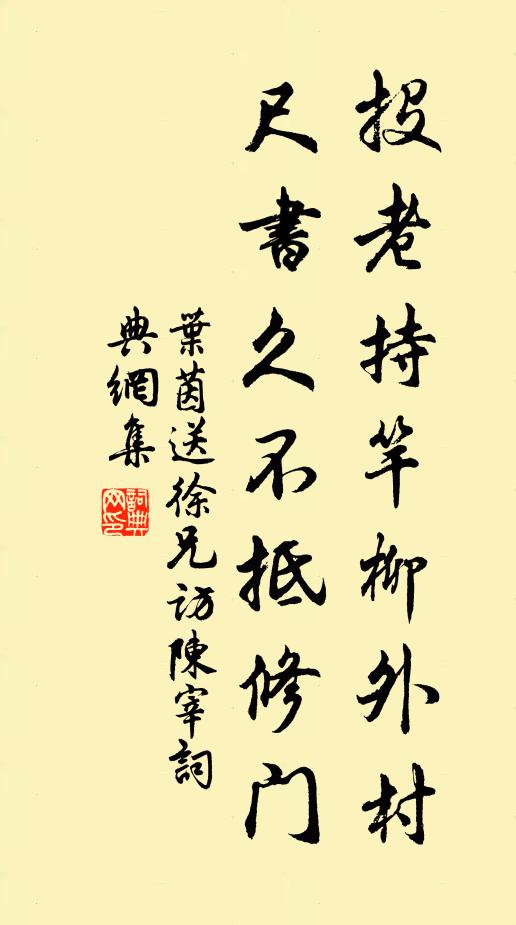 投老持竿柳外村
尺書久不抵修門
葉茵送徐兄訪陳宰詞
典網集
詞典網印